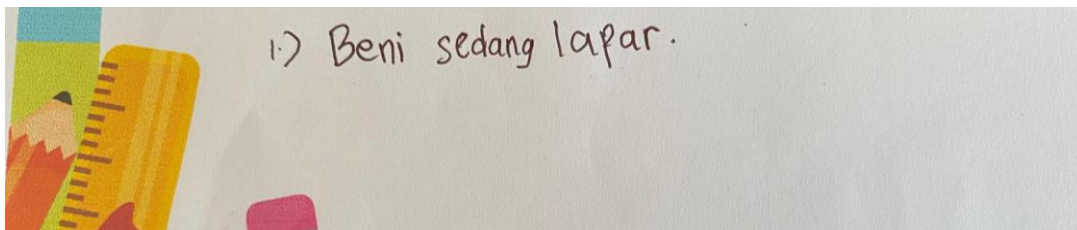 1.) Beni sedang lapar.